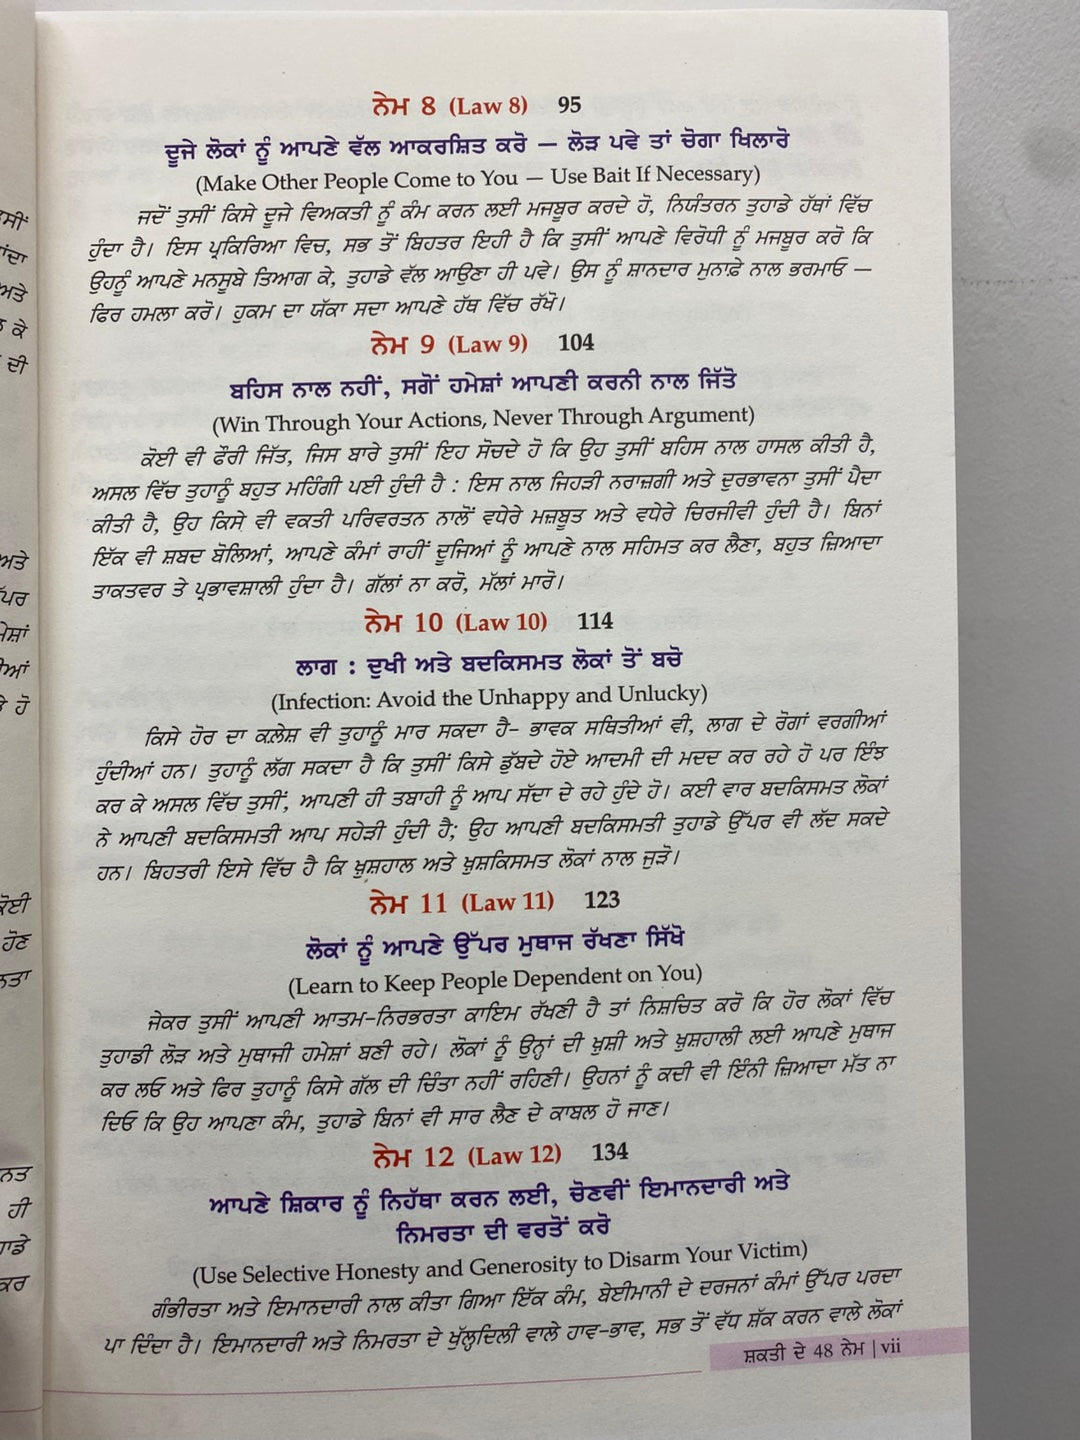 ਨੇਮ 8 (Law 8) 95
ਦੂਜੇ ਲੋਕਾਂ ਨੂੰ ਆਪਣੇ ਵੱਲ ਆਕਰਸ਼ਿਤ ਕਰੋ — ਲੋੜ ਪਵੇ ਤਾਂ ਚੋਗਾ ਖਿਲਾਰੋ
(Make Other People Come to You — Use Bait If Necessary)
ਜਦੋਂ ਤੁਸੀਂ ਕਿਸੇ ਦੂਜੇ ਵਿਅਕਤੀ ਨੂੰ ਕੰਮ ਕਰਨ ਲਈ ਮਜਬੂਰ ਕਰਦੇ ਹੋ, ਨਿਯੰਤਰਨ ਤੁਹਾਡੇ ਹੱਥਾਂ ਵਿੱਚ
ਹੁੰਦਾ ਹੈ। ਇਸ ਪ੍ਰਕਿਰਿਆ ਵਿਚ, ਸਭ ਤੋਂ ਬਿਹਤਰ ਇਹੀ ਹੈ ਕਿ ਤੁਸੀਂ ਆਪਣੇ ਵਿਰੋਧੀ ਨੂੰ ਮਜਬੂਰ ਕਰੋ ਕਿ
ਉਹਨੂੰ ਆਪਣੇ ਮਨਸੂਬੇ ਤਿਆਗ ਕੇ, ਤੁਹਾਡੇ ਵੱਲ ਆਉਣਾ ਹੀ ਪਵੇ। ਉਸ ਨੂੰ ਸ਼ਾਨਦਾਰ ਮੁਨਾਫ਼ੇ ਨਾਲ ਭਰਮਾਓ —
ਫਿਰ ਹਮਲਾ ਕਰੋ। ਹੁਕਮ ਦਾ ਯੱਕਾ ਸਦਾ ਆਪਣੇ ਹੱਥ ਵਿੱਚ ਰੱਖੋ।
ਨੇਮ 9 (Law 9) 104
ਬਹਿਸ ਨਾਲ ਨਹੀਂ, ਸਗੋਂ ਹਮੇਸ਼ਾਂ ਆਪਣੀ ਕਰਨੀ ਨਾਲ ਜਿੱਤੋ
(Win Through Your Actions, Never Through Argument)
ਕੋਈ ਵੀ ਫੌਰੀ ਜਿੱਤ, ਜਿਸ ਬਾਰੇ ਤੁਸੀਂ ਇਹ ਸੋਚਦੇ ਹੋ ਕਿ ਉਹ ਤੁਸੀਂ ਬਹਿਸ ਨਾਲ ਹਾਸਲ ਕੀਤੀ ਹੈ,
ਅਸਲ ਵਿੱਚ ਤੁਹਾਨੂੰ ਬਹੁਤ ਮਹਿੰਗੀ ਪਈ ਹੁੰਦੀ ਹੈ : ਇਸ ਨਾਲ ਜਿਹੜੀ ਨਰਾਜ਼ਗੀ ਅਤੇ ਦੁਰਭਾਵਨਾ ਤੁਸੀਂ ਪੈਦਾ
ਕੀਤੀ ਹੈ, ਉਹ ਕਿਸੇ ਵੀ ਵਕਤੀ ਪਰਿਵਰਤਨ ਨਾਲੋਂ ਵਧੇਰੇ ਮਜ਼ਬੂਤ ਅਤੇ ਵਧੇਰੇ ਚਿਰਜੀਵੀ ਹੁੰਦੀ ਹੈ। ਬਿਨਾਂ
ਇੱਕ ਵੀ ਸ਼ਬਦ ਬੋਲਿਆਂ, ਆਪਣੇ ਕੰਮਾਂ ਰਾਹੀਂ ਦੂਜਿਆਂ ਨੂੰ ਆਪਣੇ ਨਾਲ ਸਹਿਮਤ ਕਰ ਲੈਣਾ, ਬਹੁਤ ਜ਼ਿਆਦਾ
ਤਾਕਤਵਰ ਤੇ ਪ੍ਰਭਾਵਸ਼ਾਲੀ ਹੁੰਦਾ ਹੈ। ਗੱਲਾਂ ਨਾ ਕਰੋ, ਮੱਲਾਂ ਮਾਰੋ।
ਨੇਮ 10 (Law 10) 114
ਲਾਗ : ਦੁਖੀ ਅਤੇ ਬਦਕਿਸਮਤ ਲੋਕਾਂ ਤੋਂ ਬਚੋ
(Infection: Avoid the Unhappy and Unlucky)
ਕਿਸੇ ਹੋਰ ਦਾ ਕਲ਼ੇਸ਼ ਵੀ ਤੁਹਾਨੂੰ ਮਾਰ ਸਕਦਾ ਹੈ– ਭਾਵਕ ਸਥਿਤੀਆਂ ਵੀ, ਲਾਗ ਦੇ ਰੋਗਾਂ ਵਰਗੀਆਂ
ਹੁੰਦੀਆਂ ਹਨ। ਤੁਹਾਨੂੰ ਲੱਗ ਸਕਦਾ ਹੈ ਕਿ ਤੁਸੀਂ ਕਿਸੇ ਡੁੱਬਦੇ ਹੋਏ ਆਦਮੀ ਦੀ ਮਦਦ ਕਰ ਰਹੇ ਹੋ ਪਰ ਇੰਝ
ਕਰ ਕੇ ਅਸਲ ਵਿੱਚ ਤੁਸੀਂ, ਆਪਣੀ ਹੀ ਤਬਾਹੀ ਨੂੰ ਆਪ ਸੱਦਾ ਦੇ ਰਹੇ ਹੁੰਦੇ ਹੋ। ਕਈ ਵਾਰ ਬਦਕਿਸਮਤ ਲੋਕਾਂ
ਨੇ ਆਪਣੀ ਬਦਕਿਸਮਤੀ ਆਪ ਸਹੇੜੀ ਹੁੰਦੀ ਹੈ; ਉਹ ਆਪਣੀ ਬਦਕਿਸਮਤੀ ਤੁਹਾਡੇ ਉੱਪਰ ਵੀ ਲੱਦ ਸਕਦੇ
ਹਨ। ਬਿਹਤਰੀ ਇਸੇ ਵਿੱਚ ਹੈ ਕਿ ਖ਼ੁਸ਼ਹਾਲ ਅਤੇ ਖ਼ੁਸ਼ਕਿਸਮਤ ਲੋਕਾਂ ਨਾਲ ਜੁੜੋ।
ਨੇਮ 11 (Law 11) 123
ਲੋਕਾਂ ਨੂੰ ਆਪਣੇ ਉੱਪਰ ਮੁਥਾਜ ਰੱਖਣਾ ਸਿੱਖੋ
(Learn to Keep People Dependent on You)
ਜੇਕਰ ਤੁਸੀਂ ਆਪਣੀ ਆਤਮ–ਨਿਰਭਰਤਾ ਕਾਇਮ ਰੱਖਣੀ ਹੈ ਤਾਂ ਨਿਸ਼ਚਿਤ ਕਰੋ ਕਿ ਹੋਰ ਲੋਕਾਂ ਵਿੱਚ
ਤੁਹਾਡੀ ਲੋੜ ਅਤੇ ਮੁਥਾਜੀ ਹਮੇਸ਼ਾਂ ਬਣੀ ਰਹੇ। ਲੋਕਾਂ ਨੂੰ ਉਨ੍ਹਾਂ ਦੀ ਖ਼ੁਸ਼ੀ ਅਤੇ ਖ਼ੁਸ਼ਹਾਲੀ ਲਈ ਆਪਣੇ ਮੁਥਾਜ
ਕਰ ਲਓ ਅਤੇ ਫਿਰ ਤੁਹਾਨੂੰ ਕਿਸੇ ਗੱਲ ਦੀ ਚਿੰਤਾ ਨਹੀਂ ਰਹਿਣੀ। ਉਹਨਾਂ ਨੂੰ ਕਦੀ ਵੀ ਇੰਨੀ ਜ਼ਿਆਦਾ ਮੱਤ ਨਾ
ਦਿਓ ਕਿ ਉਹ ਆਪਣਾ ਕੰਮ, ਤੁਹਾਡੇ ਬਿਨਾਂ ਵੀ ਸਾਰ ਲੈਣ ਦੇ ਕਾਬਲ ਹੋ ਜਾਣ।
ਨੇਮ 12 (Law 12) 134
ਆਪਣੇ ਸ਼ਿਕਾਰ ਨੂੰ ਨਿਹੱਥਾ ਕਰਨ ਲਈ, ਚੋਣਵੀਂ ਇਮਾਨਦਾਰੀ ਅਤੇ
ਨਿਮਰਤਾ ਦੀ ਵਰਤੋਂ ਕਰੋ
(Use Selective Honesty and Generosity to Disarm Your Victim)
ਗੰਭੀਰਤਾ ਅਤੇ ਇਮਾਨਦਾਰੀ ਨਾਲ ਕੀਤਾ ਗਿਆ ਇੱਕ ਕੰਮ, ਬੇਈਮਾਨੀ ਦੇ ਦਰਜਨਾਂ ਕੰਮਾਂ ਉੱਪਰ ਪਰਦਾ
ਪਾ ਦਿੰਦਾ ਹੈ। ਇਮਾਨਦਾਰੀ ਅਤੇ ਨਿਮਰਤਾ ਦੇ ਖੁੱਲ੍ਹਦਿਲੀ ਵਾਲੇ ਹਾਵ–ਭਾਵ, ਸਭ ਤੋਂ ਵੱਧ ਸ਼ੱਕ ਕਰਨ ਵਾਲੇ ਲੋਕਾਂ
ਸ਼ਕਤੀ ਦੇ 48 ਨੇਮ | vii